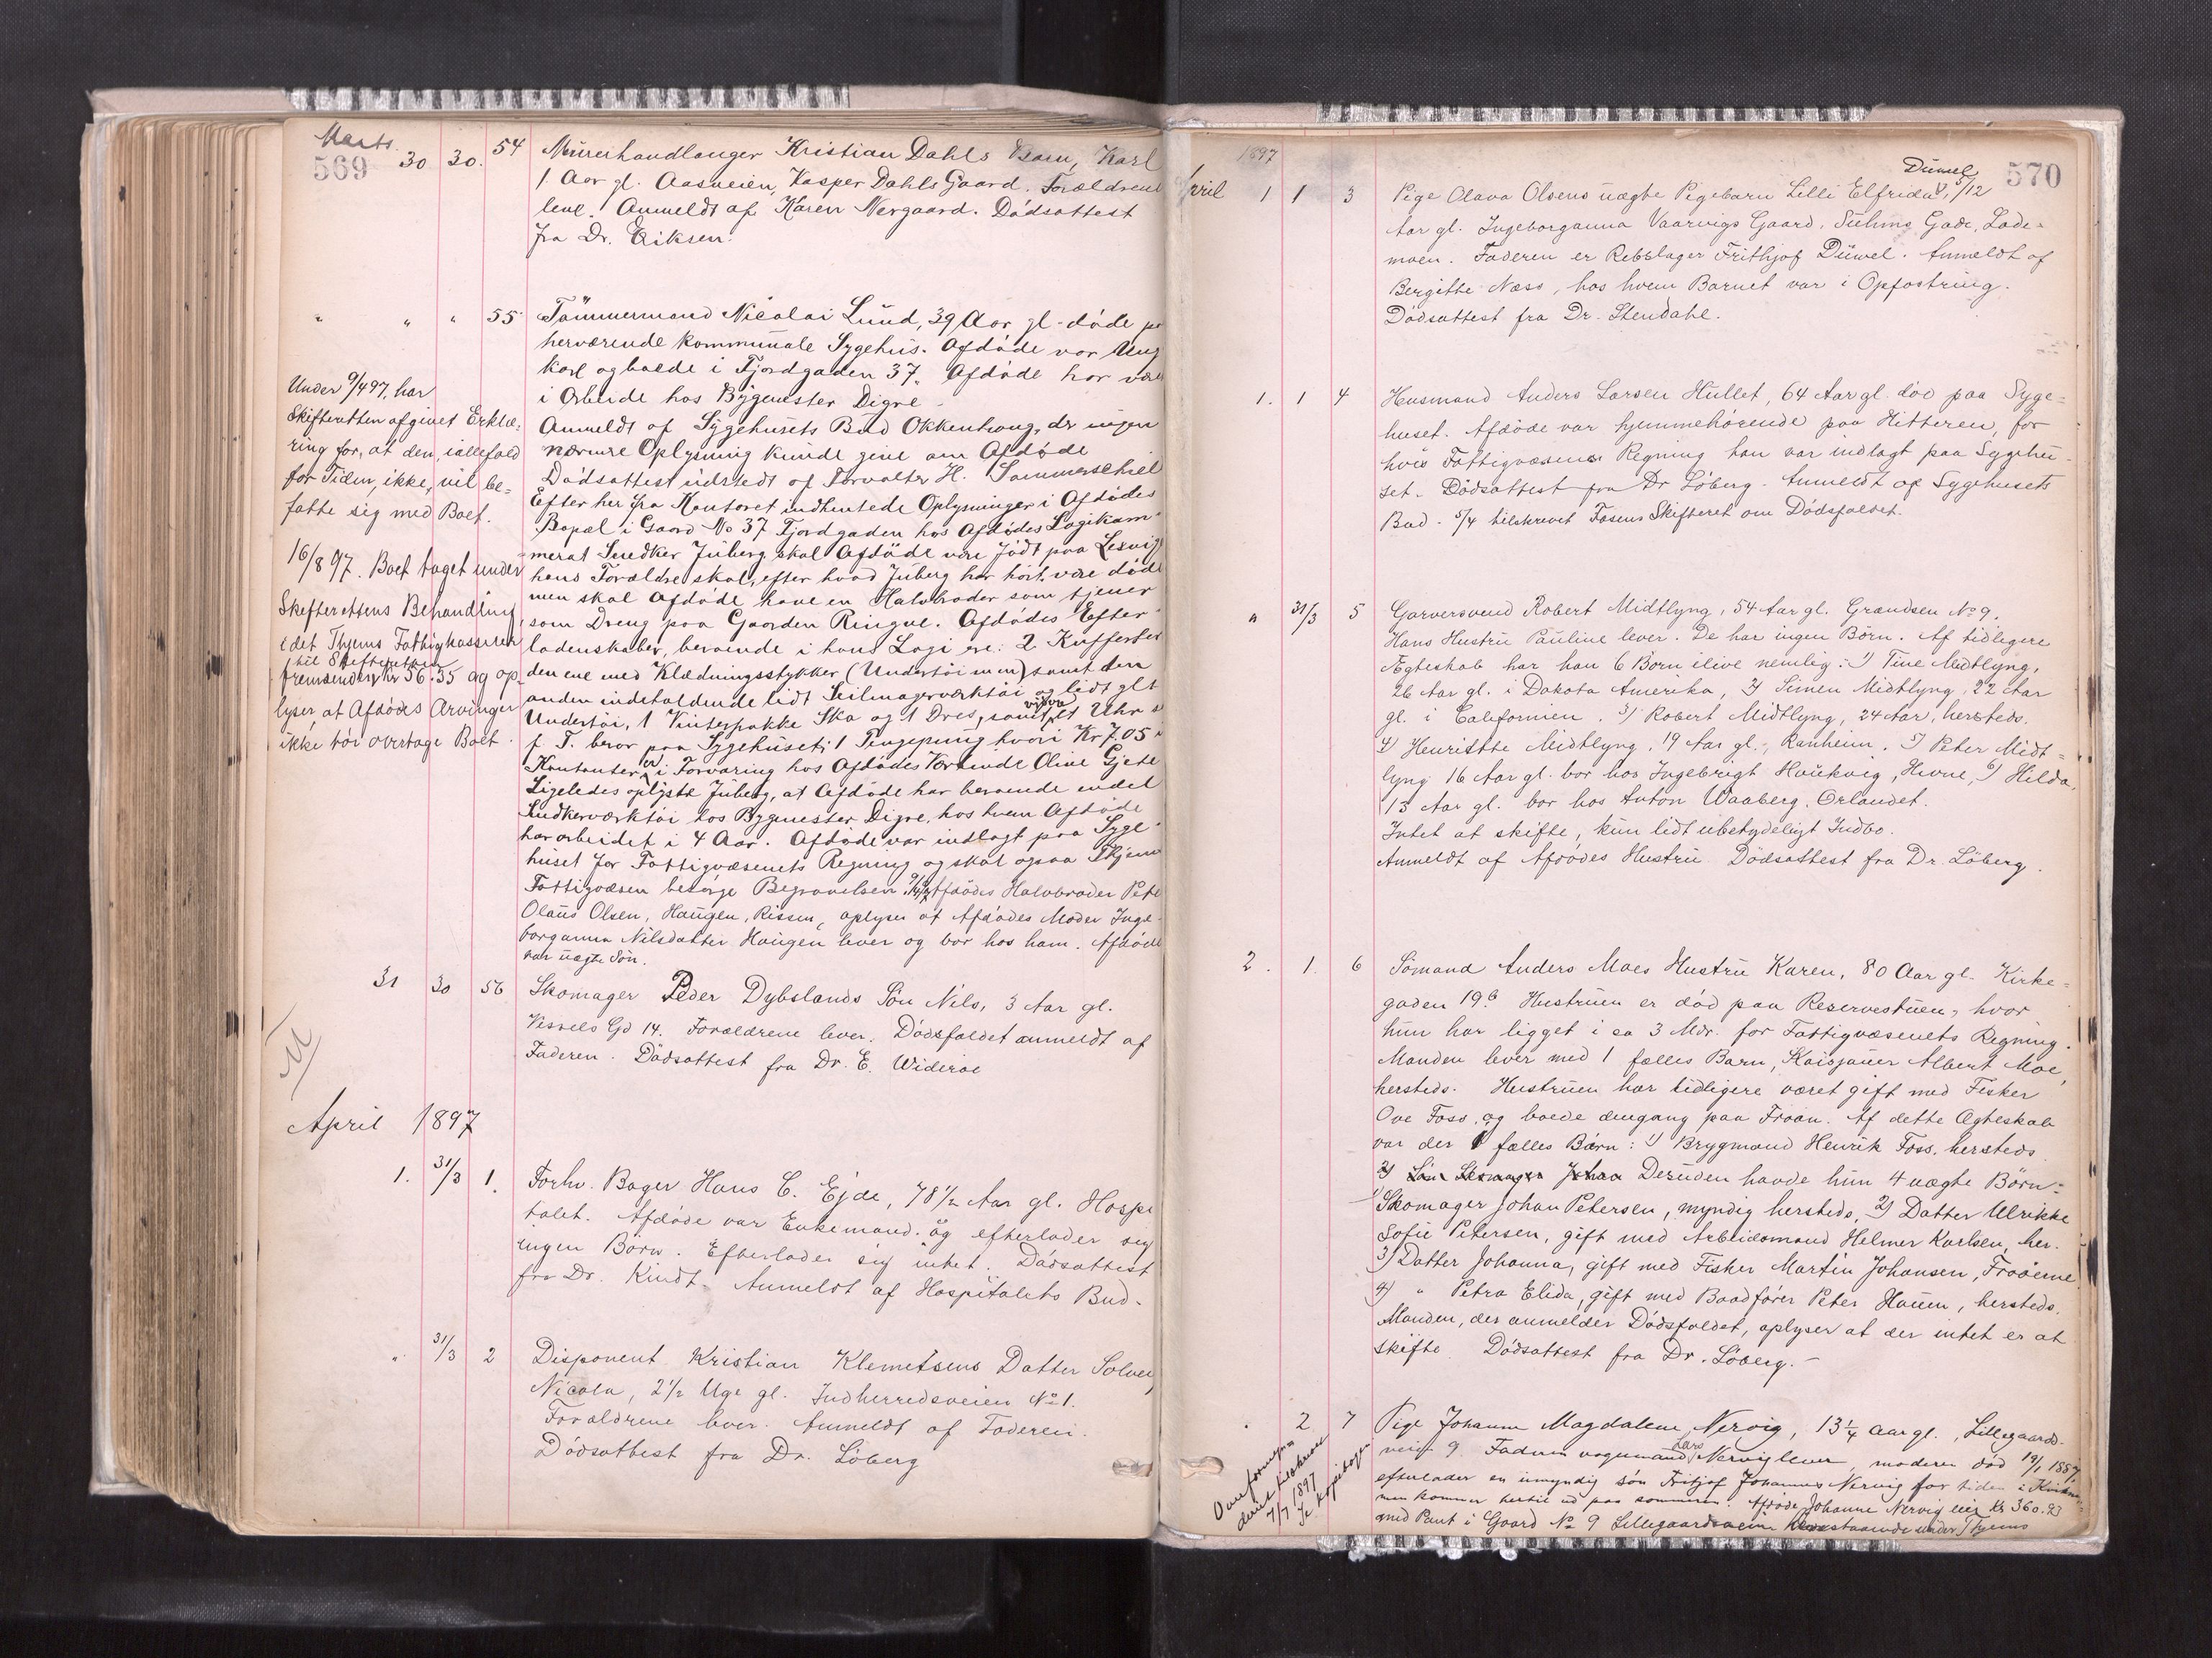 Marts
569 30 30. 54 Murerhandlanger Kristian Dahls Barn, Karl
1. Aar gl. Aasveien, Kasper Dahls Gaard. Forældrene
leve. Anmeldt af Karen Nergaard. Dödsattest
fra Dr. Eriksen.
" " " 55 Tömmermand Nicolai Lund, 39 Aar gl. döde pa
herværende kommunale Sygehus. Afdöde var Ung
karl og boede i Fjordgaden 37. Afdöde har vær
i Arbeide hos Bygmester Digre
Anmeldt af Sygehusets Bud Okkenhaug, der ingen
nærmere Oplysning kunde give om Afdöde
Dödsattest udstedt af Forvalter H. Sommerschiel
Efter her fra Kontoret indhentede Oplysninger i Afdödes
Bopæl i Gaard No 37 Fjordgaden hos Afdödes Logikam
merat Snedker Juberg skal Afdöde være födt paa Lexvig
hans Forældre skal, efter hvad Juberg har hört, være döde
men skal Afdöde have en Halvbroder som tjener
som Dreng paa Gaarden Ringve. Afdödes Efter
ladenskaber, beroende i hans Logi ere: 2 Kufferter
den ene med Klædningsstykker (Undertöi m m) samt den
anden indeholdende lidt Seilmagerværktöi og lidt glt
Undertöi, 1 Vinterfrakke Sko og 1 Dres, samt et Uhr
p. T. beror paa Sygehuset; 1 Pengepung hvori Kr 7.05
Kontanter er i Forvaring hos Afdödes Værtinde Oline Gjete
Ligeledes oplyste Juberg, at Afdöde har beroende endel
Snedkerværktöi hos Bygmester Digre, hos hvem Afdöde
har arbeidet i 4 Aar. Afdöde var indlagt paa Syge
huset for Fattigvæsenets Regning og skal ogsaa Thjems
Fattigvæsen besörge Begravelsen. 9/4 97 Afdödes Halvbroder Pete
Olaus Olsen, Haugen, Rissen, oplyser at Afdödes Moder Inge
borganna Nilsdatter Haugen lever og bor hos ham. Afdöde
var uægte Sön.
Under 9/4 97, har
Skifteretten afgivet Erklæ=
ring for, at den, iallefald
for Tiden, ikke, vil be=
fatte sig med Boet.
16/8 97. Boet taget under
Skifterettens Behandling
idet Thjems Fattigkasserer
til Skifteretten
fremsender Kr 56.35 og op
lyser, at Afdödes Arvinger
ikke tör overtage Boet.
31 30 56 Skomager Peder Dybslands Sön Nils, 3 Aar gl.
Vessels Gd 14. Forældrene lever. Dödsfaldet anmeldt af
Faderen. Dödsattest fra Dr. E. Wideröe
April 1897
1. 31/3 1. Forhv. Bager Hans C. Ejde, 78 1/2 Aar gl. Hospi
talet. Afdöde var Enkemand og efterlader sig
ingen Börn. Efterlader sig intet. Dödsattest
fra Dr. Kindt. Anmeldt af Hospitalets Bud.
" 31/3 2 Disponent Kristian Klemetsens Datter Solvei
Nicola, 2 1/2 Uge gl. Indherredsveien No 1.
Forældrene lever. Anmeldt af Faderen.
Dödsattest fra Dr. Löberg
1897
570
Düwel
April 1 1 3 Pige Olava Olsens uægte Pigebarn Lilli Elfrida, 5/12
Aar gl. Ingeborganna Vaarvigs Gaard, Suhms Gade, Lade=
moen. Faderen er Rebslager Frithjof Düwel. Anmeldt af
Bergitte Næss, hos hvem Barnet var i Opfostring.
Dödsattest fra Dr. Stendahl.
1. 1 4 Husmand Anders Larsen Hullet, 64 Aar gl. död paa Syge=
huset. Afdöde var hjemmehörende paa Hitteren, for
hvis Fattigvæsens Regning han var indlagt paa Sygehu
set. Dödsattest fra Dr Löberg. Anmeldt af Sygehusets
Bud. 5/4 tilskrevet Fosens Skifteret om Dödsfaldet.
" 31/3 5 Garversvend Robert Midtlyng, 54 Aar gl. Grændsen No 9.
Hans Hustru Pauline lever. De har ingen Börn. Af tidligere
Ægteskab har han 6 Börn ilive nemlig: 1) Tine Midtlyng,
26 Aar gl. i Dakota Amerika, 2) Simen Midtlyng, 22 Aar
gl. i Californien. 3) Robert Midtlyng, 24 Aar, hersteds.
4) Henriette Midtlyng, 19 Aar gl., Ranheim. 5) Peter Midt=
lyng 16 Aar gl. bor hos Ingebrigt Haukvig, Hevne, 6) Hilda,
13 Aar gl. bor hos Anton Waaberg, Örlandet.
Intet at skifte, kun lidt ubetydeligt Indbo.
Anmeldt af Afdödes Hustru. Dödsattest fra Dr. Löberg.
2. 1. 6 Sömand Anders Moes Hustru Karen, 80 Aar gl. Kirke=
gaden 19b Hustruen er död paa Reservestuen, hvor
hun har ligget i ca 3 Mdr. for Fattigvæsenets Regning.
Manden lever med 1 fælles Barn, Kaisjauer Albert Moe,
hersteds. Hustruen har tidligere været gift med Fisker
Ove Foss, og boede dengang paa Froan. Af dette Ægteskab
var der 1 fælles Barn: 1) Brygmand Henrik Foss, hersteds
2) Sön Skomager Johan Desuden havde hun 4 uægte Börn:
1) Skomager Johan Petersen, myndig hersteds, 2) Datter Ulrikke
Sofie Petersen, gift med Arbeidsmand Helmer Karlsen, her.
3) Datter Johanna, gift med Fisker Martin Johansen, Froöerne
4) " Petra Elida, gift med Baadförer Peter Hauen, hersteds.
Manden, der anmelder Dödsfaldet, oplyser at der intet er at
skifte. Dödsattest fra Dr. Löberg.-
. 2 7 Pige Johanne Magdalene Nervig, 13 1/4 Aar gl., Lillegaards
veien 9. Faderen vognmand Lars Nervig lever, moderen död 19/1 1887,
efterlader en umyndig sön Fritjof Johannes Nervig for tiden i
men kommer hertil ud paa sommeren. Afdöde Johanne Nervig eier Kr 360.93
med Pant i Gaard No 9 Lillegaardsveien indestaaende under Thjems
Overformyn
deriet tilskrevet
7/7 1897
Se Kopiebogen